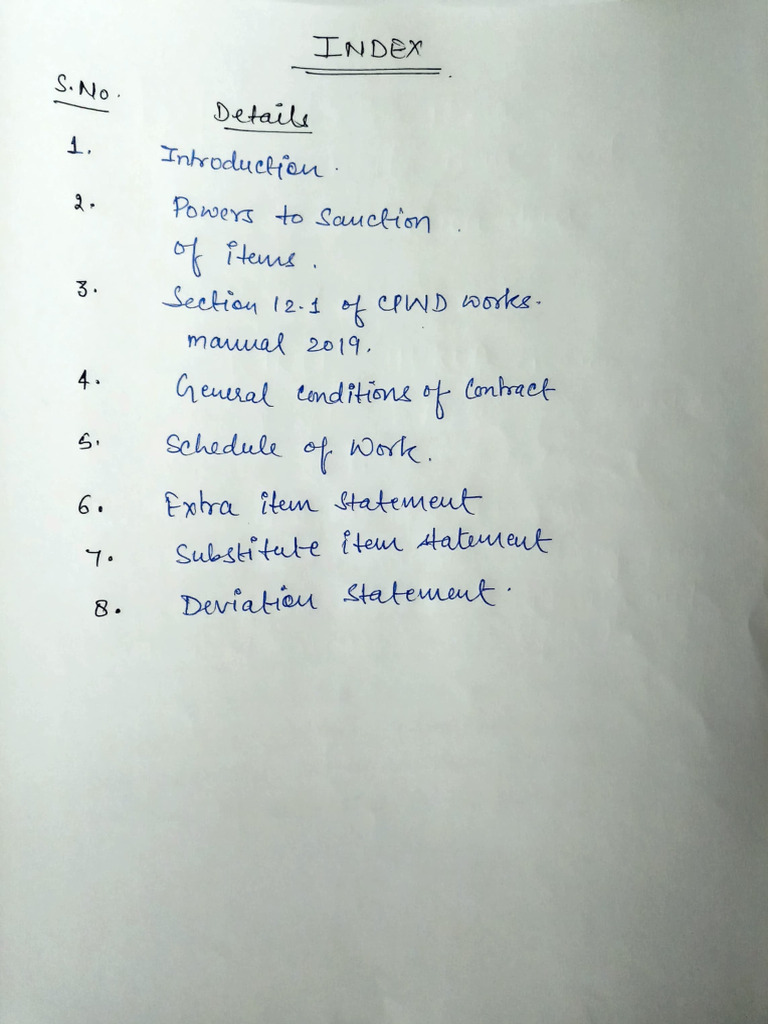 INDEX
S.No.
Details
1. Introduction.
2. Powers to Sanction
of items.
3. Section 12.1 of CPWD works.
manual 2019.
4. General conditions of Contract
5. Schedule of Work.
6. Extra item statement
7. Substitute item statement
8. Deviation statement.